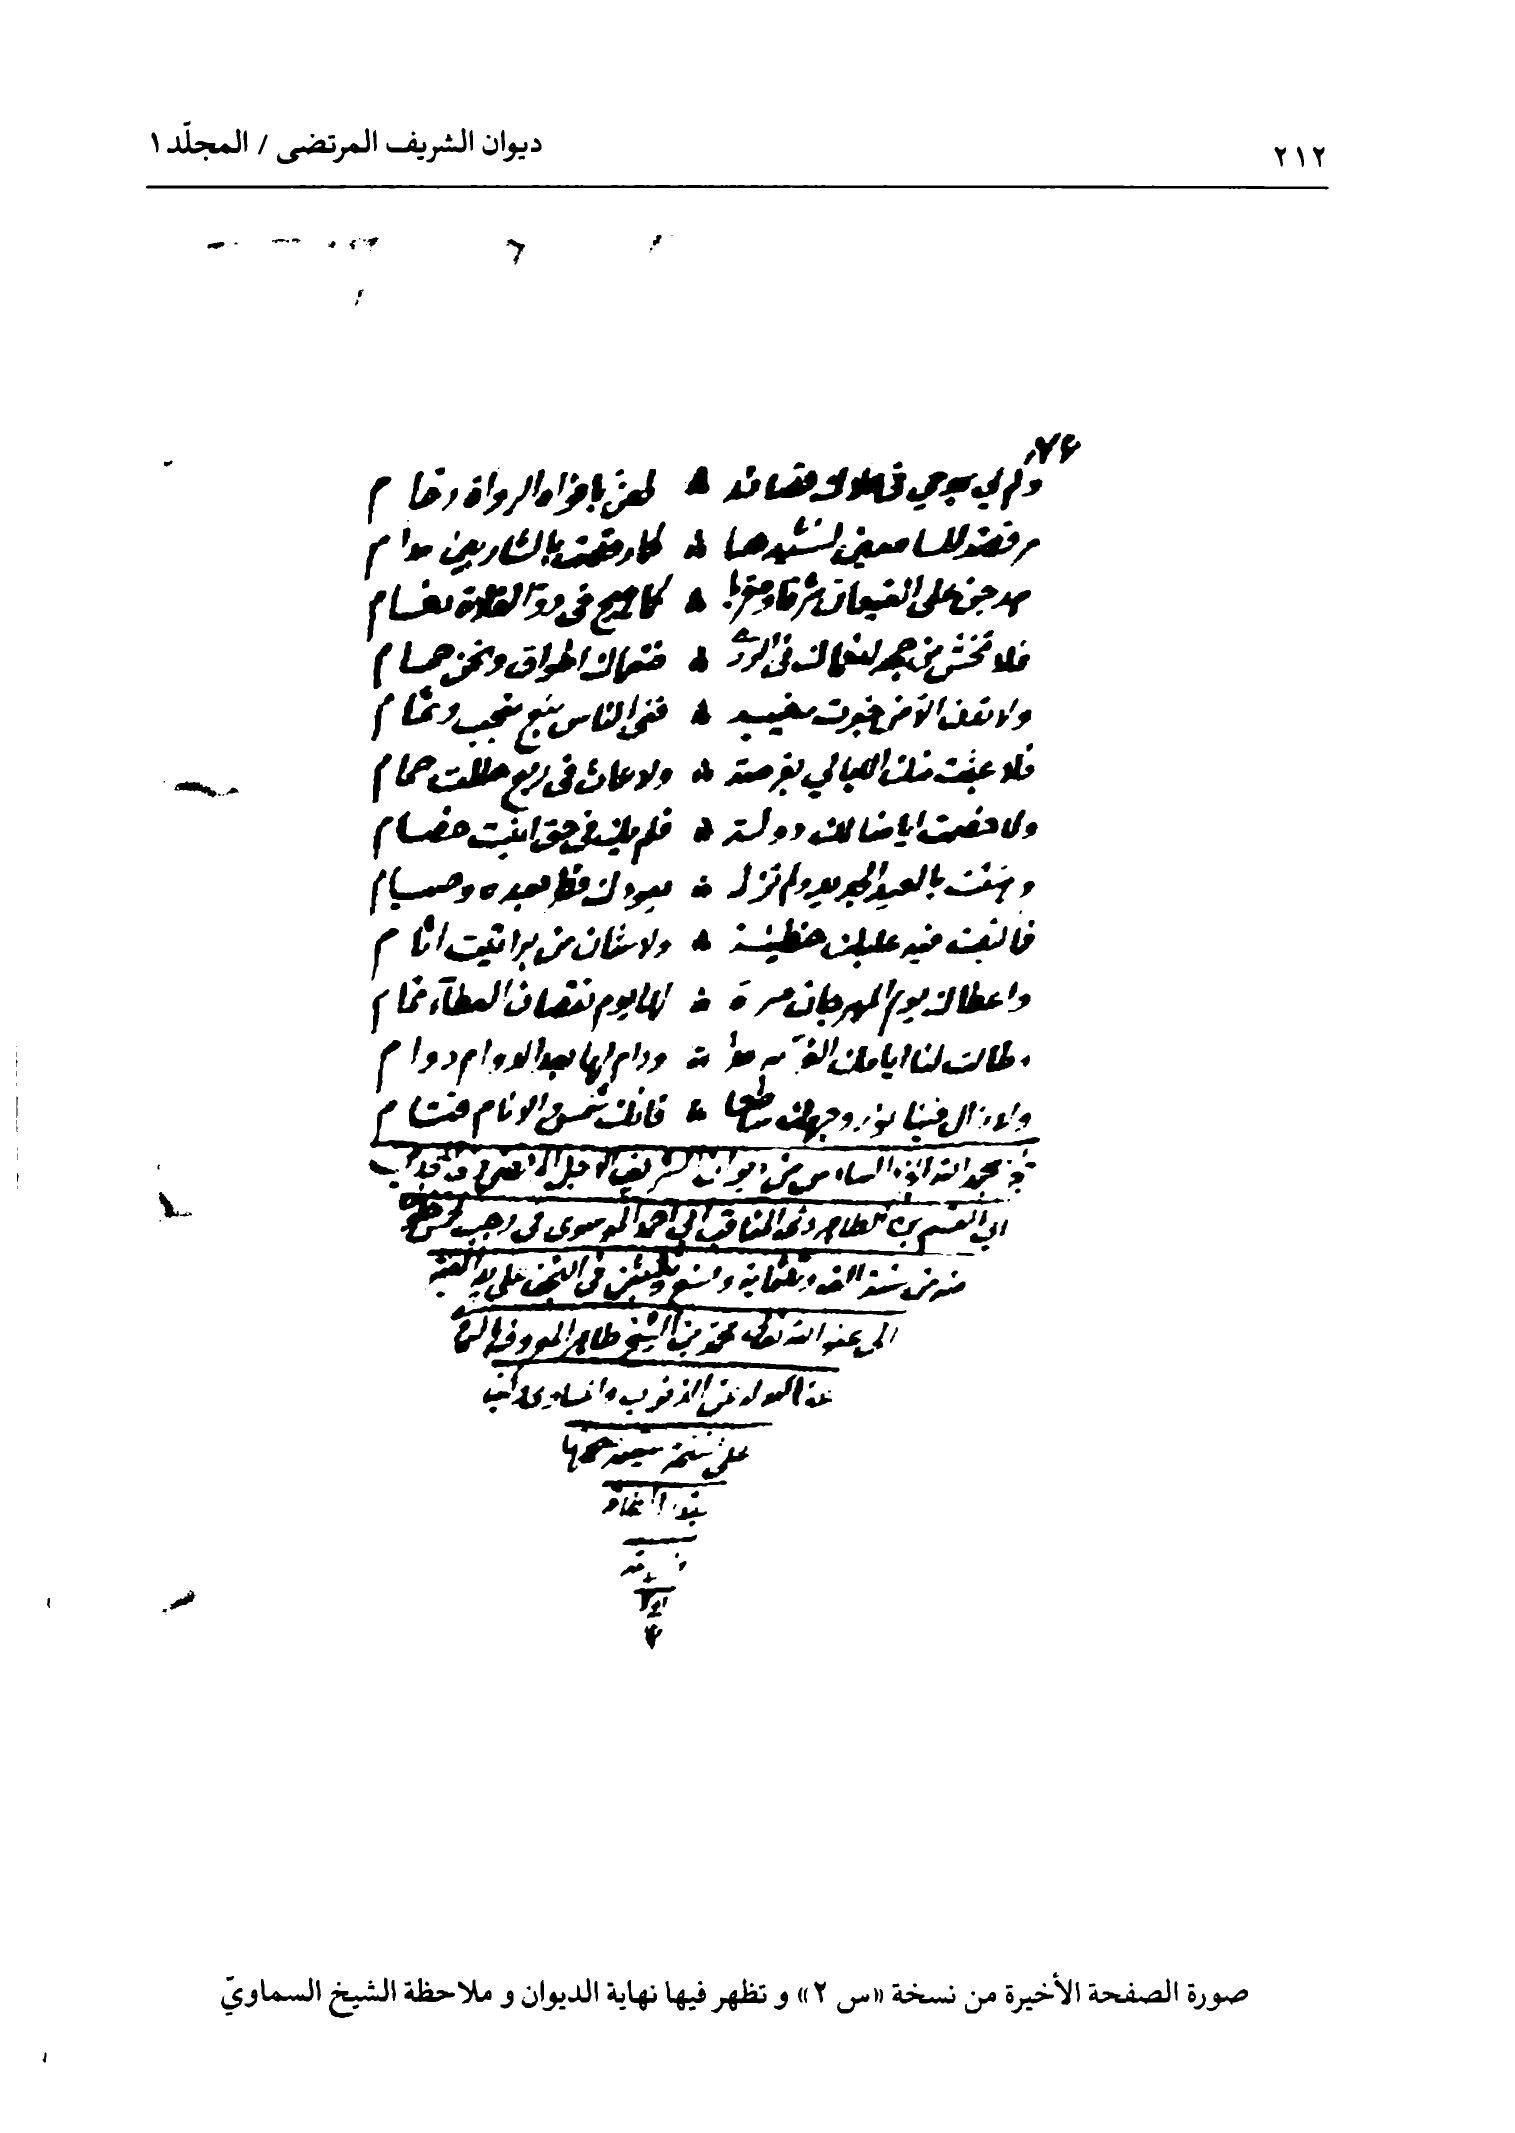 ٢١٢
ديوان الشريف المرتضى / المجلّد ١
٧٦
ولم لي يوحي في علاك قصائد لهن بافواه الرواة زحام
يرقصن للسامعين نشيدها كما رقصت بالشاربين مدام
على القيعان شرقا ومغربا كما في دوّ الفلاة نعام
فلا تخش من جحد لنعماك في الورى فنعماك اطواق ونحن حمام
ولا تعن الأمر خوف مغيب ففي الناس نبع منجب وثمام
فلا عبثت منك الليالي بفرصة ولا عاث في ربع حللت حمام
ولا خصمت ايامنا لك دولة فلم يك في حق اتيت خصام
وهنئت بالعيد الجديد ولم تزل يعودك فطر بعده وصيام
فما لفت فيه عليك خطيئة ولا شان من بر اتيت اثام
واعطاك يوم المهرجان مسرة لها يوم نقصان العطآء تمام
وطالت لنا ايامك الغر ودام لها بعد الدوام دوام
ولا زال فينا نور وجهك ساطعا فانك شمس والانام قتام
تم بحمد الله الجزء السادس من ديوان الشريف الاجل المرتضى
ابي القسم بن الطاهر ذي المناقب ابي احمد الموسوي في رجب لخمس
منه من سنة الف وثلثماية وتسع وثلثين في النجف على يد الفقير
الى عفو الله تعالى محمد بن الشيخ طاهر المعروف
من الذنوب والمساوي
على نسخة سقيمة
صورة الصفحة الأخيرة من نسخة «س ٢» و تظهر فيها نهاية الديوان و ملاحظة الشيخ السماويّ